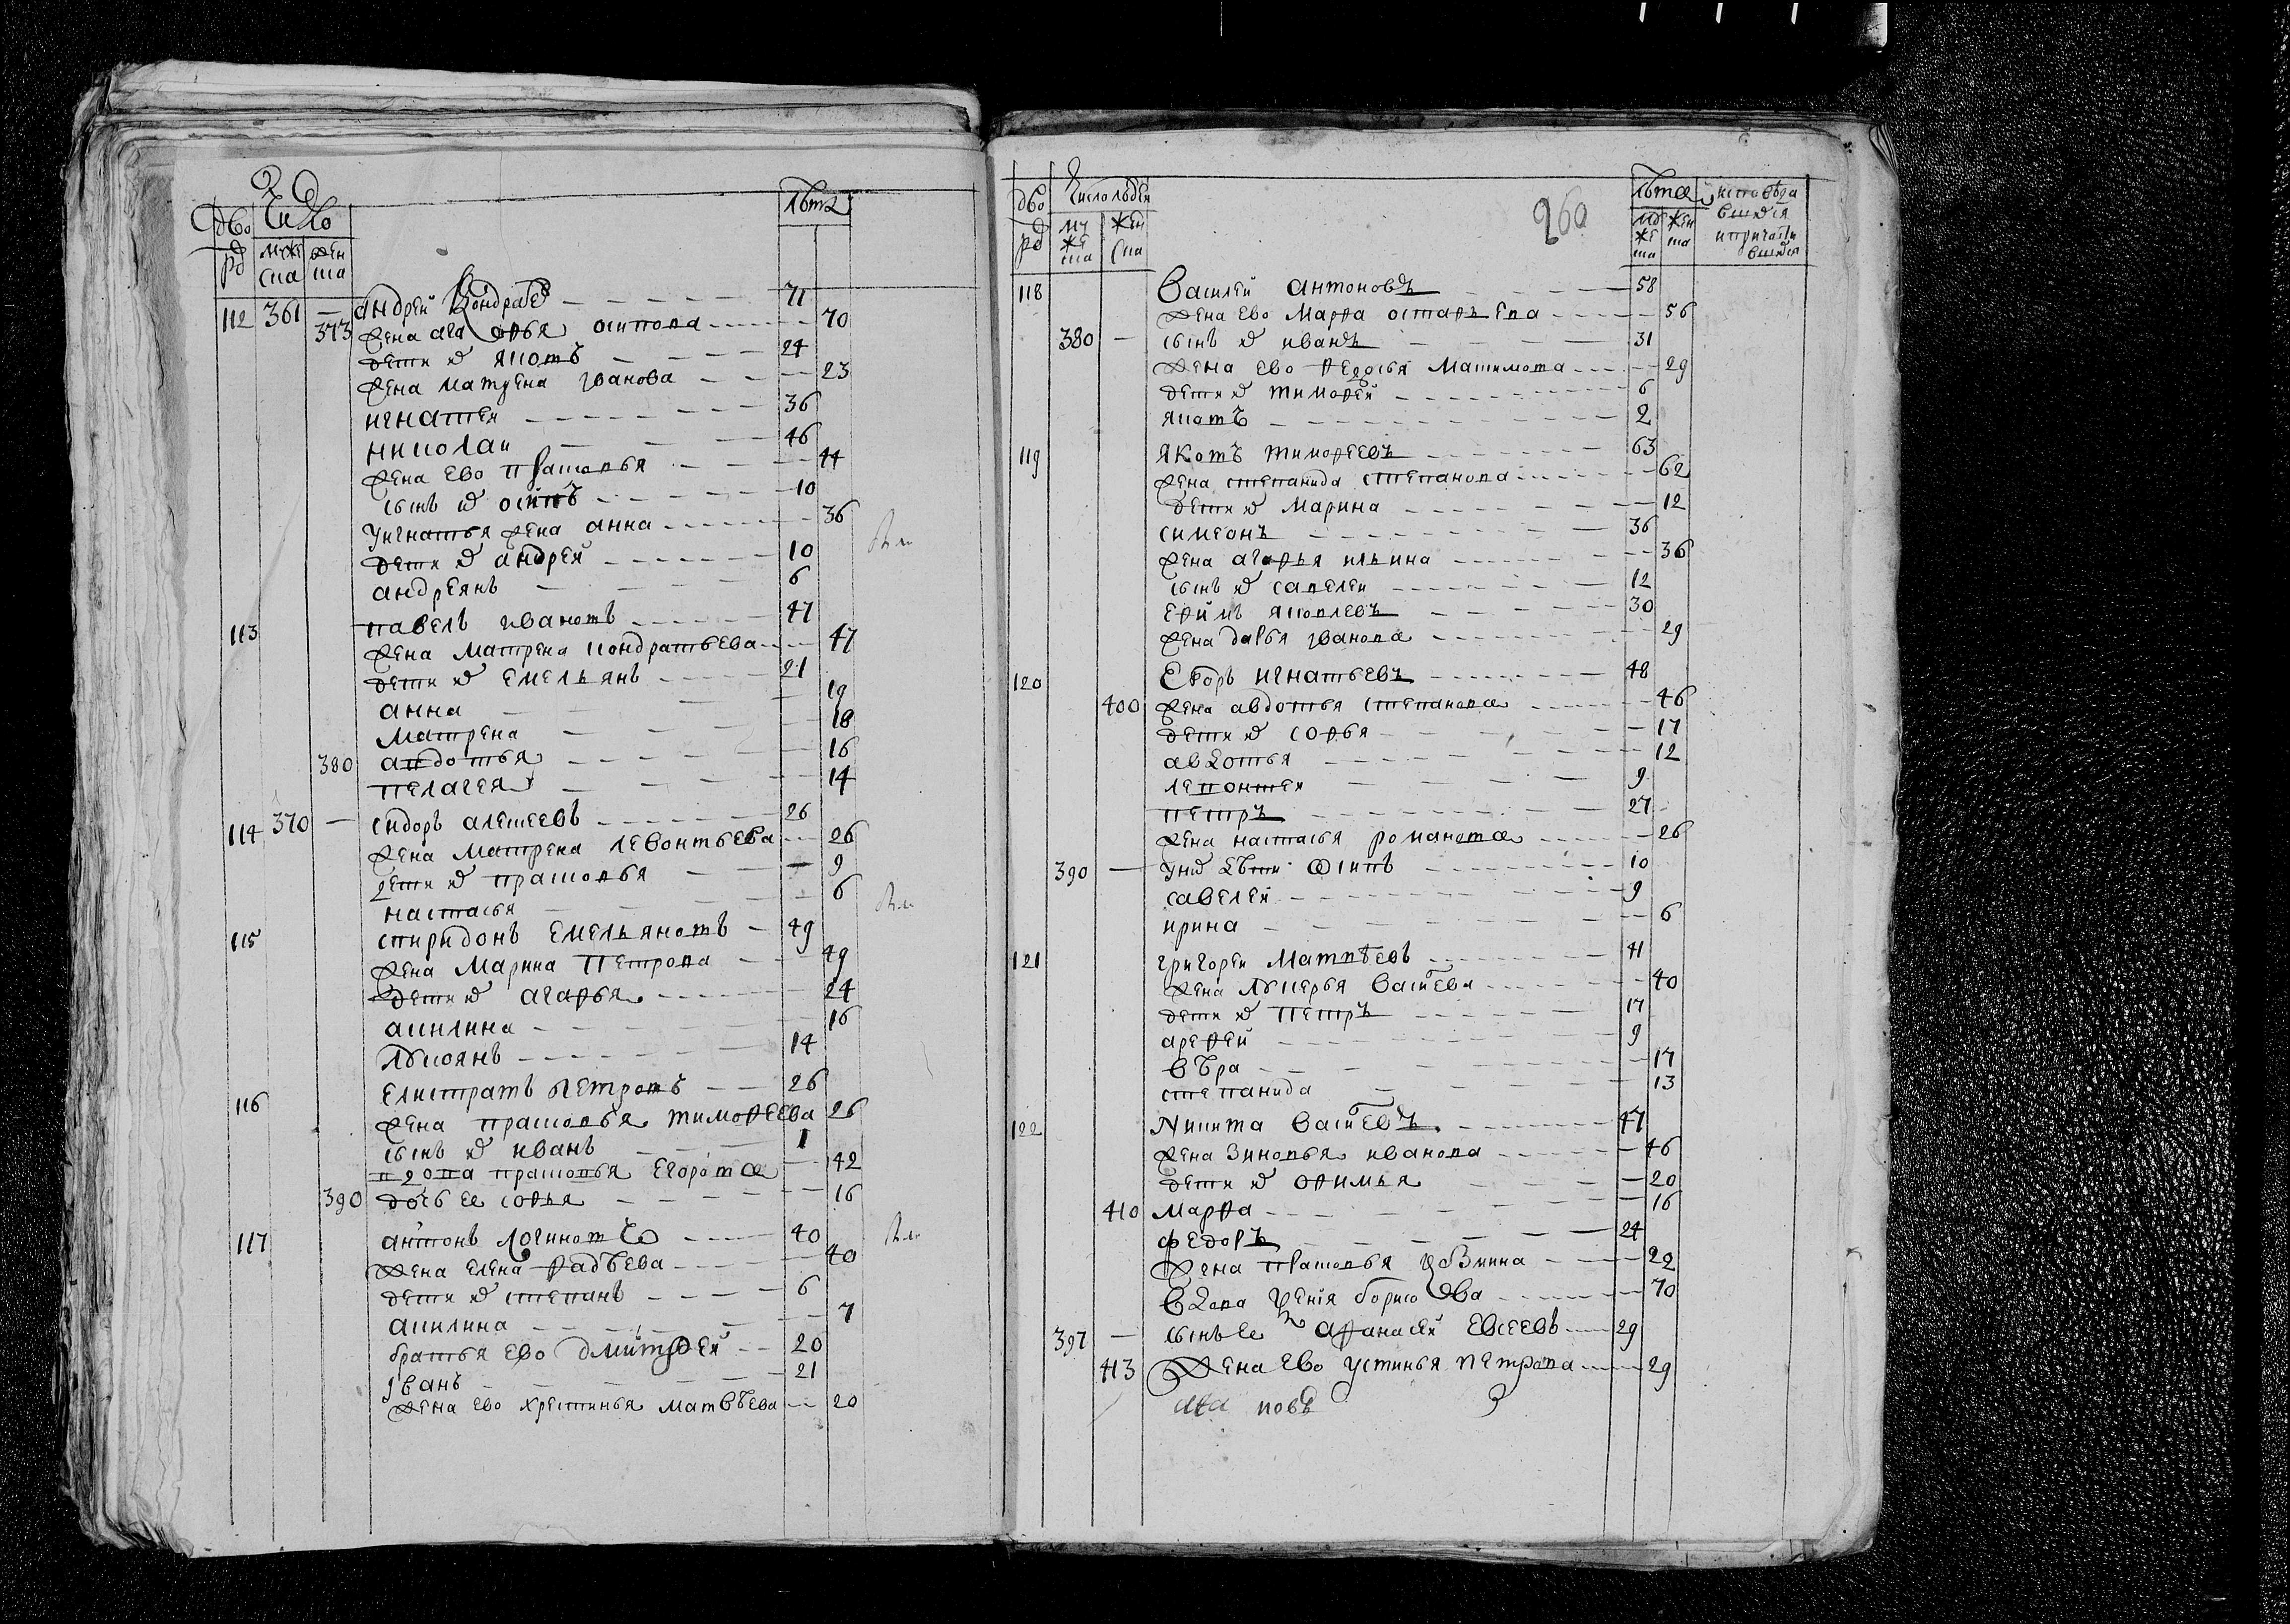 дво
ръ
Число
муже
ска
жен
ска
Лѣта
112 361 — Андрей Кондратев 71
373 жена ага осипова 70
дети их яковъ 24
жена матрена иванова 23
игнатей 36
николаи 46
жена ево прасковья 44
сынъ их осипъ 10
у игнатья жена анна 36
дети их андрей 10
андреянъ 6
113 павелъ ивановъ 47
жена матрена кондратьева 47
дети их емельянъ 21
анна 19
матрена 18
380 авдотья 16
пелагея 14
114 370 — сидоръ алексеевъ 26
жена матрена левонтьева 26
дети их прасковья 9
настасья 6
115 спиридонъ емельяновъ 49
жена марина петрова 49
дети их агафья 24
акилина 16
лукоянъ 14
116 елистратъ петровъ 26
жена прасковья тимофеева 26
сынъ их иванъ 1
вдова прасковья егорова 42
390 дочь ее софья 16
117 антонъ логиновъ 40
жена елена фадѣева 40
дети их степанъ 6
акилина 7
братья ево дмитрей 20
иванъ 21
жена ево христинья матвѣева 20
260
дво
ръ
Число людеи
му
же
ска
жен
ска
лѣта
му
же
ска
жен
ска
исповѣда
вшихся
и причасти
вшихся
118 Василеи антоновъ 58
жена ево марфа 56
380 — сынъ их иванъ 31
жена ево федосья максимова 29
дети их тимофеи 6
яковъ 2
119 яковъ тимофеевъ 63
жена степанида степанова 62
дети их марина 12
симеонъ 36
жена агафья ильина 36
сынъ их савелеи 12
ефимъ яковлевъ 30
жена дарья иванова 29
120 Егоръ игнатьевъ 48
400 жена авдотья степанова 46
дети их софья 17
авдотья 12
левонтеи 9
петръ 27
жена настасья романова 26
390 — у них дѣти осипъ 10
савелеи 9
ирина 6
121 григореи матвѣевъ 41
жена лукерья васильева 40
дети их петръ 17
арефеи 9
вѣра 17
степанида 13
122 Никита васильевъ 47
жена зиновья иванова 46
дети их офимья 20
410 марфа 16
федоръ 24
жена прасковья 22
вдова борисова 70
397 — сынъ ее афанасеи евсеевъ 29
413 жена ево устинья петрова 29